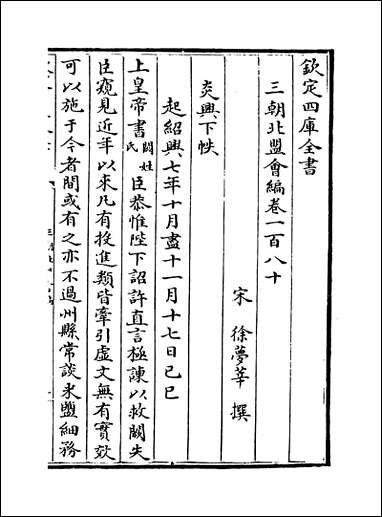 欽定四庫全書
三朝北盟會編卷一百八十
宋 徐夢莘 撰
炎興下帙
起紹興七年十月盡十一月十七日己巳
上皇帝書闕姓氏臣恭惟陛下詔許直言極諫以救闕失
臣窺見近年以來凡有投進類皆牽引虛文無有實效
可以施于今者間或有之亦不過州縣常談米鹽細務